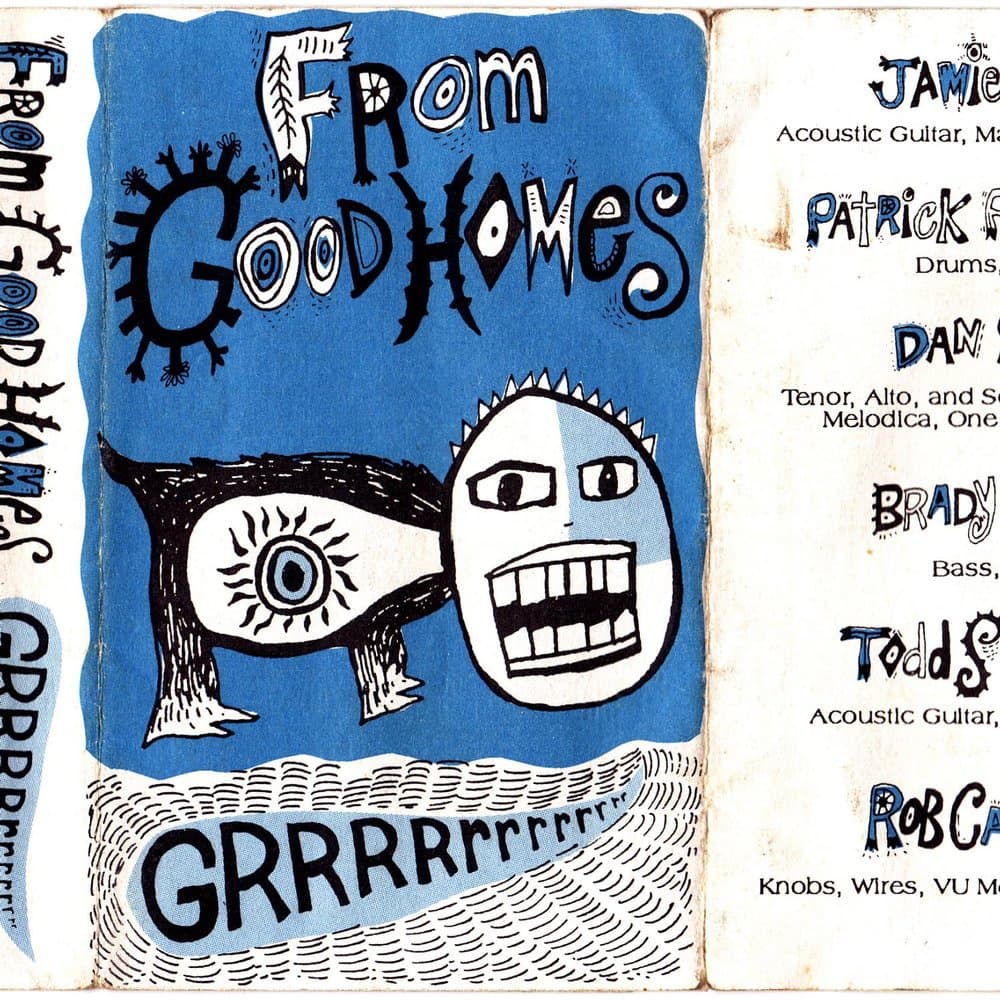 FROM GOOD HOMES
GRRRRrrrrrrrr
FROM
GOOD HOMES
GRRRRrrrrrrrr
JAMIE
Acoustic Guitar,
PATRICK
Drums,
DAN
Tenor, Alto, and
Melodica, One
BRADY
Bass,
Todd
Acoustic Guitar,
ROB
Knobs, Wires, VU